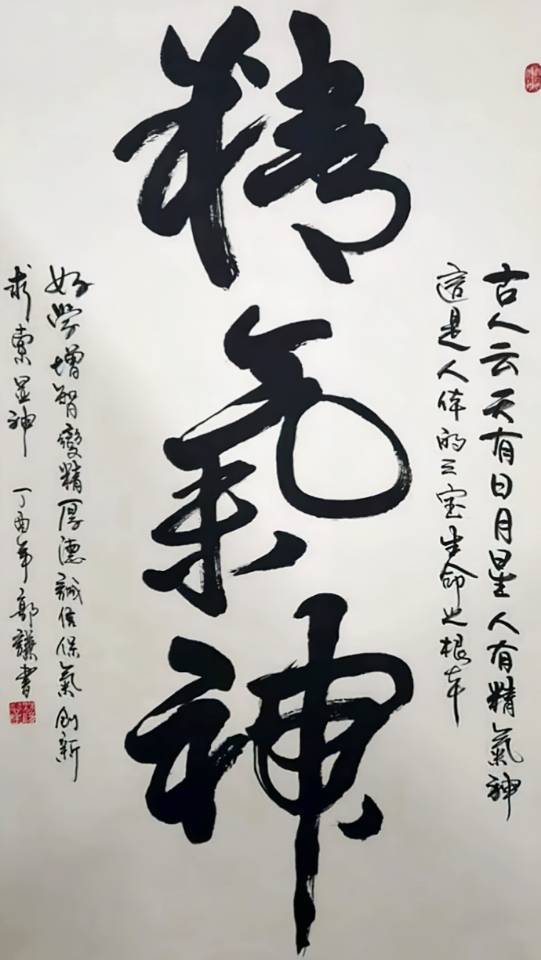 古人云天有日月星人有精氣神
這是人体的三宝生命之根本
精氣神
好學增智變精厚德誠信保氣創新
求索显神 丁酉年 郭謙書